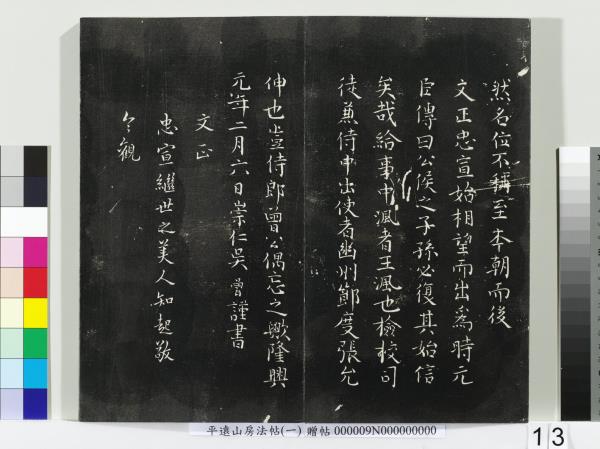 然名位不稱至本朝而後
文正忠宣始相望而出為時元
臣傳曰公侯之子孫必復其始信
矣哉給事中渢者王渢也檢校司
徒兼侍中出使者幽州節度張允
伸也豈侍郎曾公偶忘之歟隆興
元年二月六日崇仁吳曾謹書
文正
忠宣繼世之美人知起敬
平遠山房法帖(一) 贈帖 000009N000000000
13